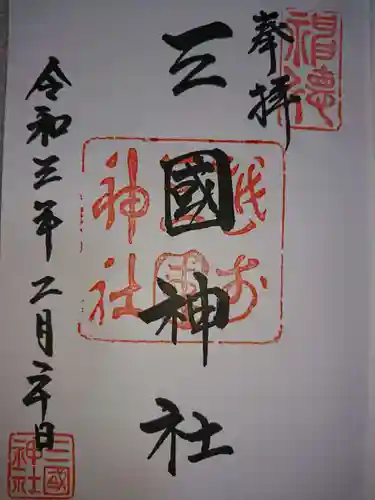 奉拝
三國神社
越前
三國
神社
令和三年二月二十日
三國
神社